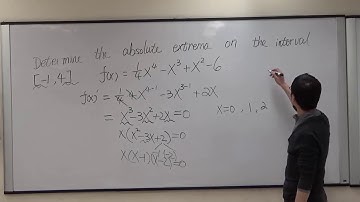 Determine the absolute extrema on the interval
[-1,4] f(x) = 1/4 x^4 - x^3 + x^2 - 6
f(x)' = 1/4 · 4x^{4-1} - 3x^{3-1} + 2x
= x^3 - 3x^2 + 2x = 0
x(x^2 - 3x + 2) = 0
x(x-1)(x-2) = 0
x=0, 1, 2